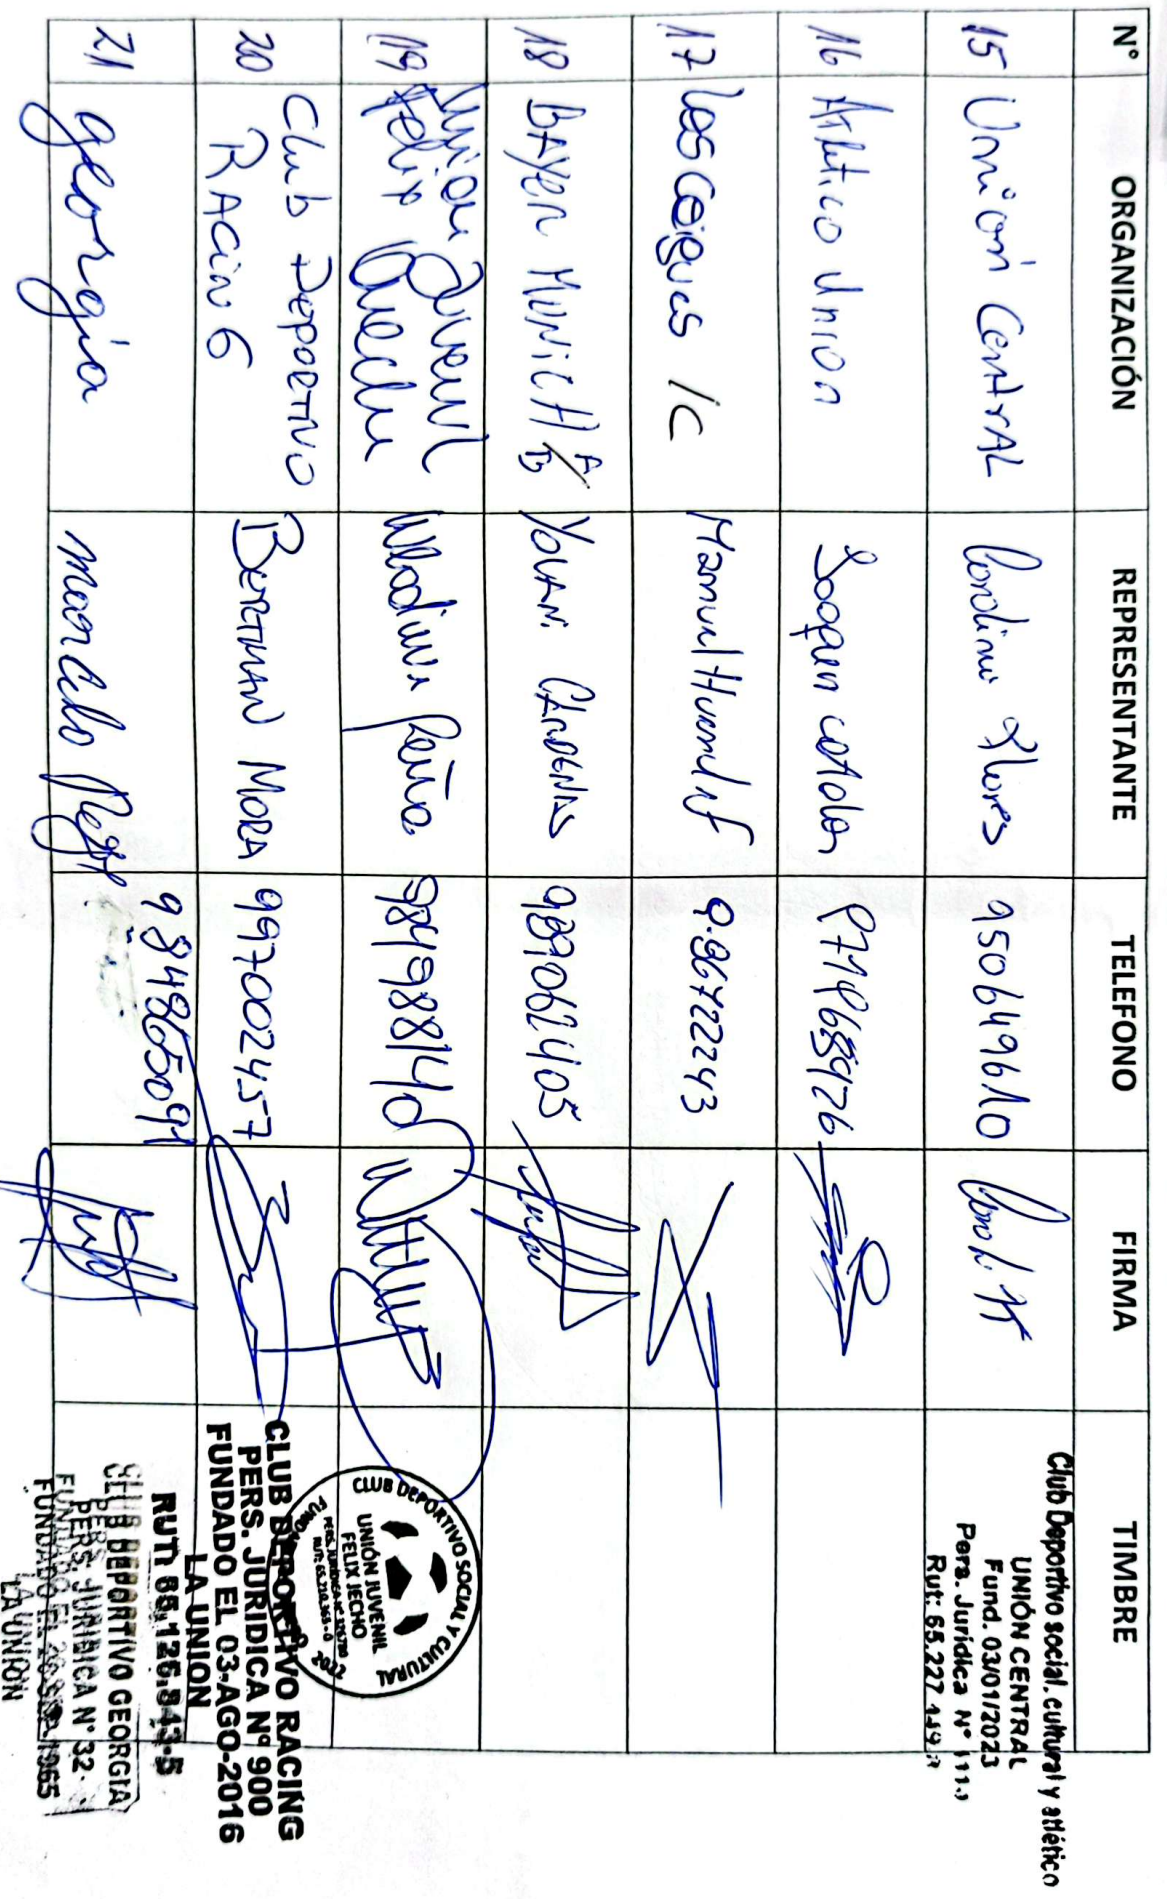 N° ORGANIZACIÓN REPRESENTANTE TELEFONO FIRMA TIMBRE
15 Unión Central Flores 950649610
Club Deportivo social, cultural y atlético
UNIÓN CENTRAL
Fund. 03/01/2023
Pers. Jurídica N°
Rut: 65.227
16 Atletico Union
17 Los Coigues /C Manuel 9.96722243
18 BAYER MUNICH A/B YOVANi CARDENAS 989062405
19 Union Juvenil
Felix Peña 984998140
CLUB DEPORTIVO SOCIAL Y CULTURAL
UNIÓN JUVENIL
FELIX JECHO
2022
20 Club DEPORTIVO
RACING BERTMAN MORA 997002457
CLUB DEPORTIVO RACING
PERS. JURIDICA Nº 900
FUNDADO EL 03-AGO-2016
LA UNION
21 georgia marcelo 984865091
RUT:
CLUB DEPORTIVO GEORGIA
PERS. JURIDICA N° 32
LA UNION